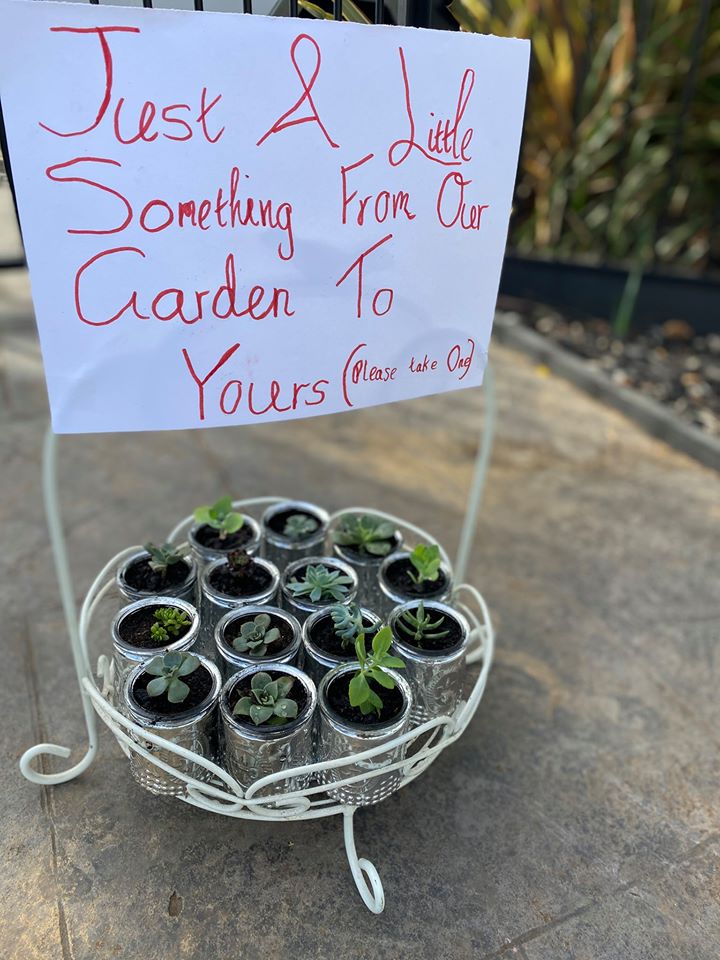 Just A Little
Something From Our
Garden To
Yours (Please take One)